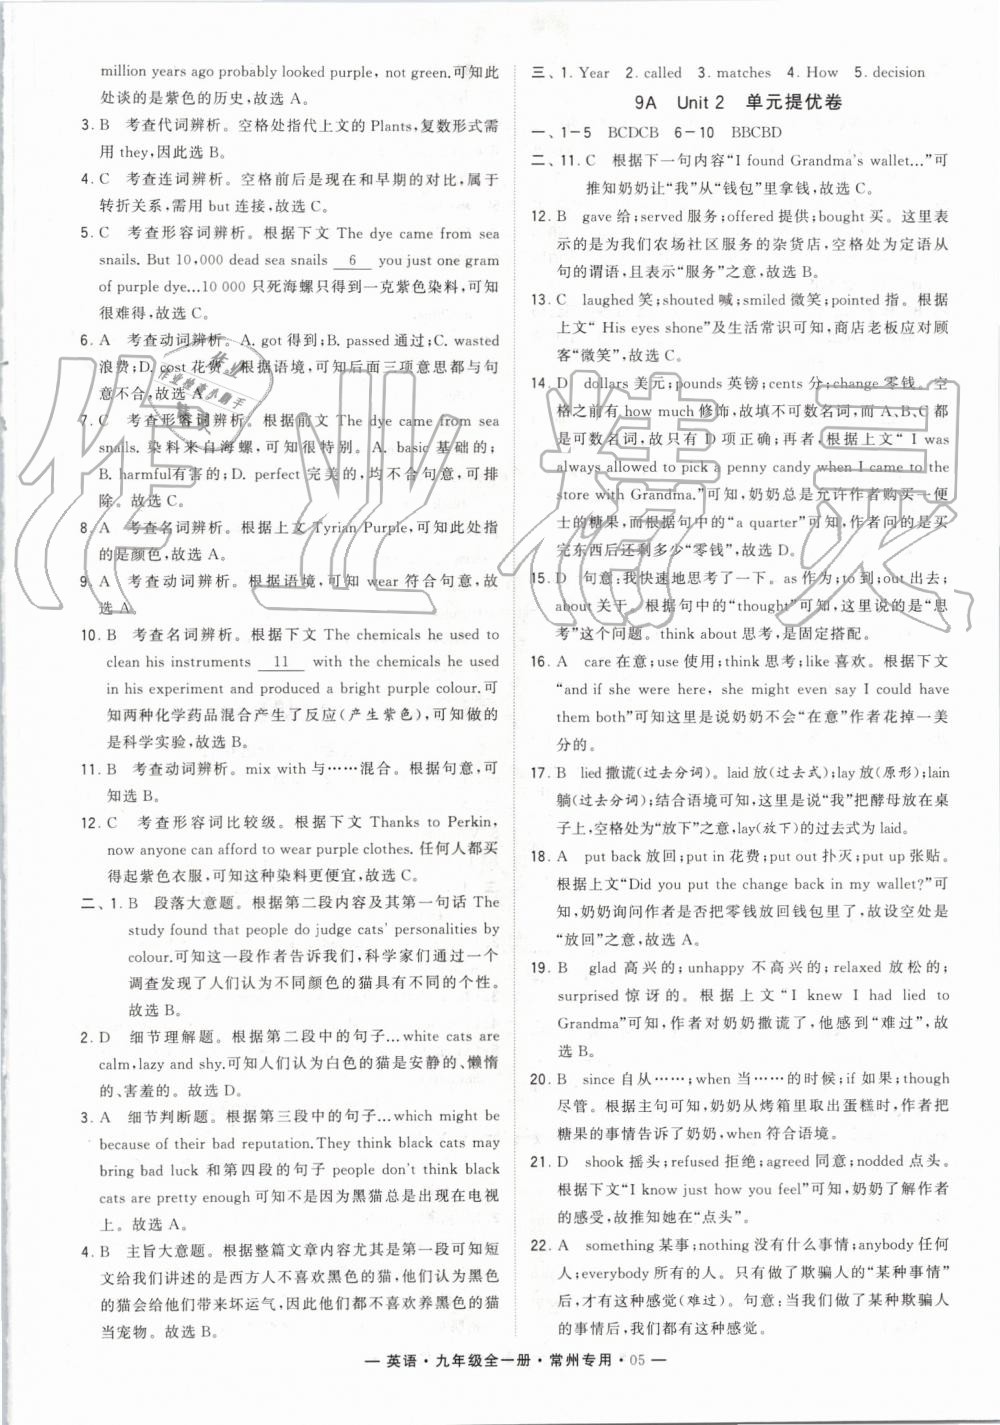 million years ago probably looked purple, not green.可知此
处谈的是紫色的历史,故选 A。
3. B 考查代词辨析。空格处指代上文的 Plants,复数形式需
用 they,因此选 B。
4. C 考查连词辨析。空格前后是现在和早期的对比,属于
转折关系,需用 but 连接,故选 C。
5. C 考查形容词辨析。根据下文 The dye came from sea
snails. But 10,000 dead sea snails 6 you just one gram
of purple dye...10 000 只死海螺只得到一克紫色染料,可知
很难得,故选 C。
6. A 考查动词辨析。A. got 得到;B. passed 通过;C. wasted
浪费;D. cost 花费。根据语境,可知后面三项意思都与句
意不合,故选 A。
7. C 考查形容词辨析。根据前文 The dye came from sea
snails. 染料来自海螺,可知很特别。A. basic 基础的;
B. harmful有害的;D. perfect 完美的,均不合句意,可排
除。故选 C。
8. A 考查名词辨析。根据上文 Tyrian Purple,可知此处指
的是颜色,故选 A。
9. A 考查动词辨析。根据语境,可知 wear 符合句意,故
选 A。
10. B 考查名词辨析。根据下文 The chemicals he used to
clean his instruments 11 with the chemicals he used
in his experiment and produced a bright purple colour.可
知两种化学药品混合产生了反应(产生紫色),可知做的
是科学实验,故选 B。
11. B 考查动词辨析。mix with 与……混合。根据句意,可
知选 B。
12. C 考查形容词比较级。根据下文 Thanks to Perkin,
now anyone can afford to wear purple clothes. 任何人都买
得起紫色衣服,可知这种染料更便宜,故选 C。
二、1. B 段落大意题。根据第二段内容及其第一句话 The
study found that people do judge cats' personalities by
colour.可知这一段作者告诉我们,科学家们通过一个
调查发现了人们认为不同颜色的猫具有不同的个性。
故选 B。
2. D 细节理解题。根据第二段中的句子...white cats are
calm,lazy and shy.可知人们认为白色的猫是安静的、懒惰
的、害羞的。故选 D。
3. A 细节判断题。根据第三段中的句子...which might be
because of their bad reputation.They think black cats may
bring bad luck 和第四段的句子 people don't think black
cats are pretty enough 可知不是因为黑猫总是出现在电视
上。故选 A。
4. B 主旨大意题。根据整篇文章内容尤其是第一段可知短
文给我们讲述的是西方人不喜欢黑色的猫,他们认为黑色
的猫会给他们带来坏运气,因此他们都不喜欢养黑色的猫
当宠物。故选 B。
三、1. Year 2. called 3. matches 4. How 5. decision
9A Unit 2 单元提优卷
一、1-5 BCDCB 6-10 BBCBD
二、11. C 根据下一句内容“I found Grandma's wallet...”可
推知奶奶让“我”从“钱包”里拿钱,故选 C。
12. B gave 给;served 服务;offered 提供;bought 买。这里表
示的是为我们农场社区服务的杂货店,空格处为定语从
句的谓语,且表示“服务”之意,故选 B。
13. C laughed 笑;shouted 喊;smiled 微笑;pointed 指。根据
上文“ His eyes shone”及生活常识可知,商店老板应对顾
客“微笑”,故选 C。
14. D dollars 美元;pounds 英镑;cents 分;change 零钱。空
格之前有 how much 修饰,故填不可数名词,而 A、B、C
都是可数名词,故只有 D 项正确;再者,根据上文“ I was
always allowed to pick a penny candy when I came to the
store with Grandma.”可知,奶奶总是允许作者购买一便
士的糖果,而根据句中的“a quarter”可知,作者问的是买
完东西后还剩多少“零钱”,故选 D。
15. D 句意:我快速地思考了一下。as 作为;to 到;out 出去;
about 关于。根据句中的“thought”可知,这里说的是“思
考”这个问题。think about 思考,是固定搭配。
16. A care 在意;use 使用;think 思考;like 喜欢。根据下文
“and if she were here, she might even say I could have
them both”可知这里是说奶奶不会“在意”作者花掉一美
分的。
17. B lied 撒谎(过去分词)。laid 放(过去式);lay 放(原形);lain
躺(过去分词);结合语境可知,这里是说“我”把酵母放在桌
子上,空格处为“放下”之意,lay(放下)的过去式为 laid。
18. A put back 放回;put in 花费;put out 扑灭;put up 张贴。
根据上文“Did you put the change back in my wallet?”可
知,奶奶询问作者是否把零钱放回钱包里了,故设空处是
“放回”之意,故选 A。
19. B glad 高兴的;unhappy 不高兴的;relaxed 放松的;
surprised 惊讶的。根据上文“I knew I had lied to
Grandma”可知,作者对奶奶撒谎了,他感到“难过”,故
选 B。
20. B since 自从……;when 当……的时候;if 如果;though
尽管。根据主句可知,奶奶从烤箱里取出蛋糕时,作者把
糖果的事情告诉了奶奶,when 符合语境。
21. D shook 摇头;refused 拒绝;agreed 同意;nodded 点头。
根据下文“I know just how you feel”可知,奶奶了解作者
的感受,故推知她在“点头”。
22. A something 某事;nothing 没有什么事情;anybody 任何
人;everybody 所有的人。只有做了欺骗人的“某种事情”
后,才有这种感觉(难过)。句意:当我们做了某种欺骗人
的事情后,我们都有这种感觉。
— 英语·九年级全一册·常州专用·05 —
作业精灵
作业
作业检查小助手